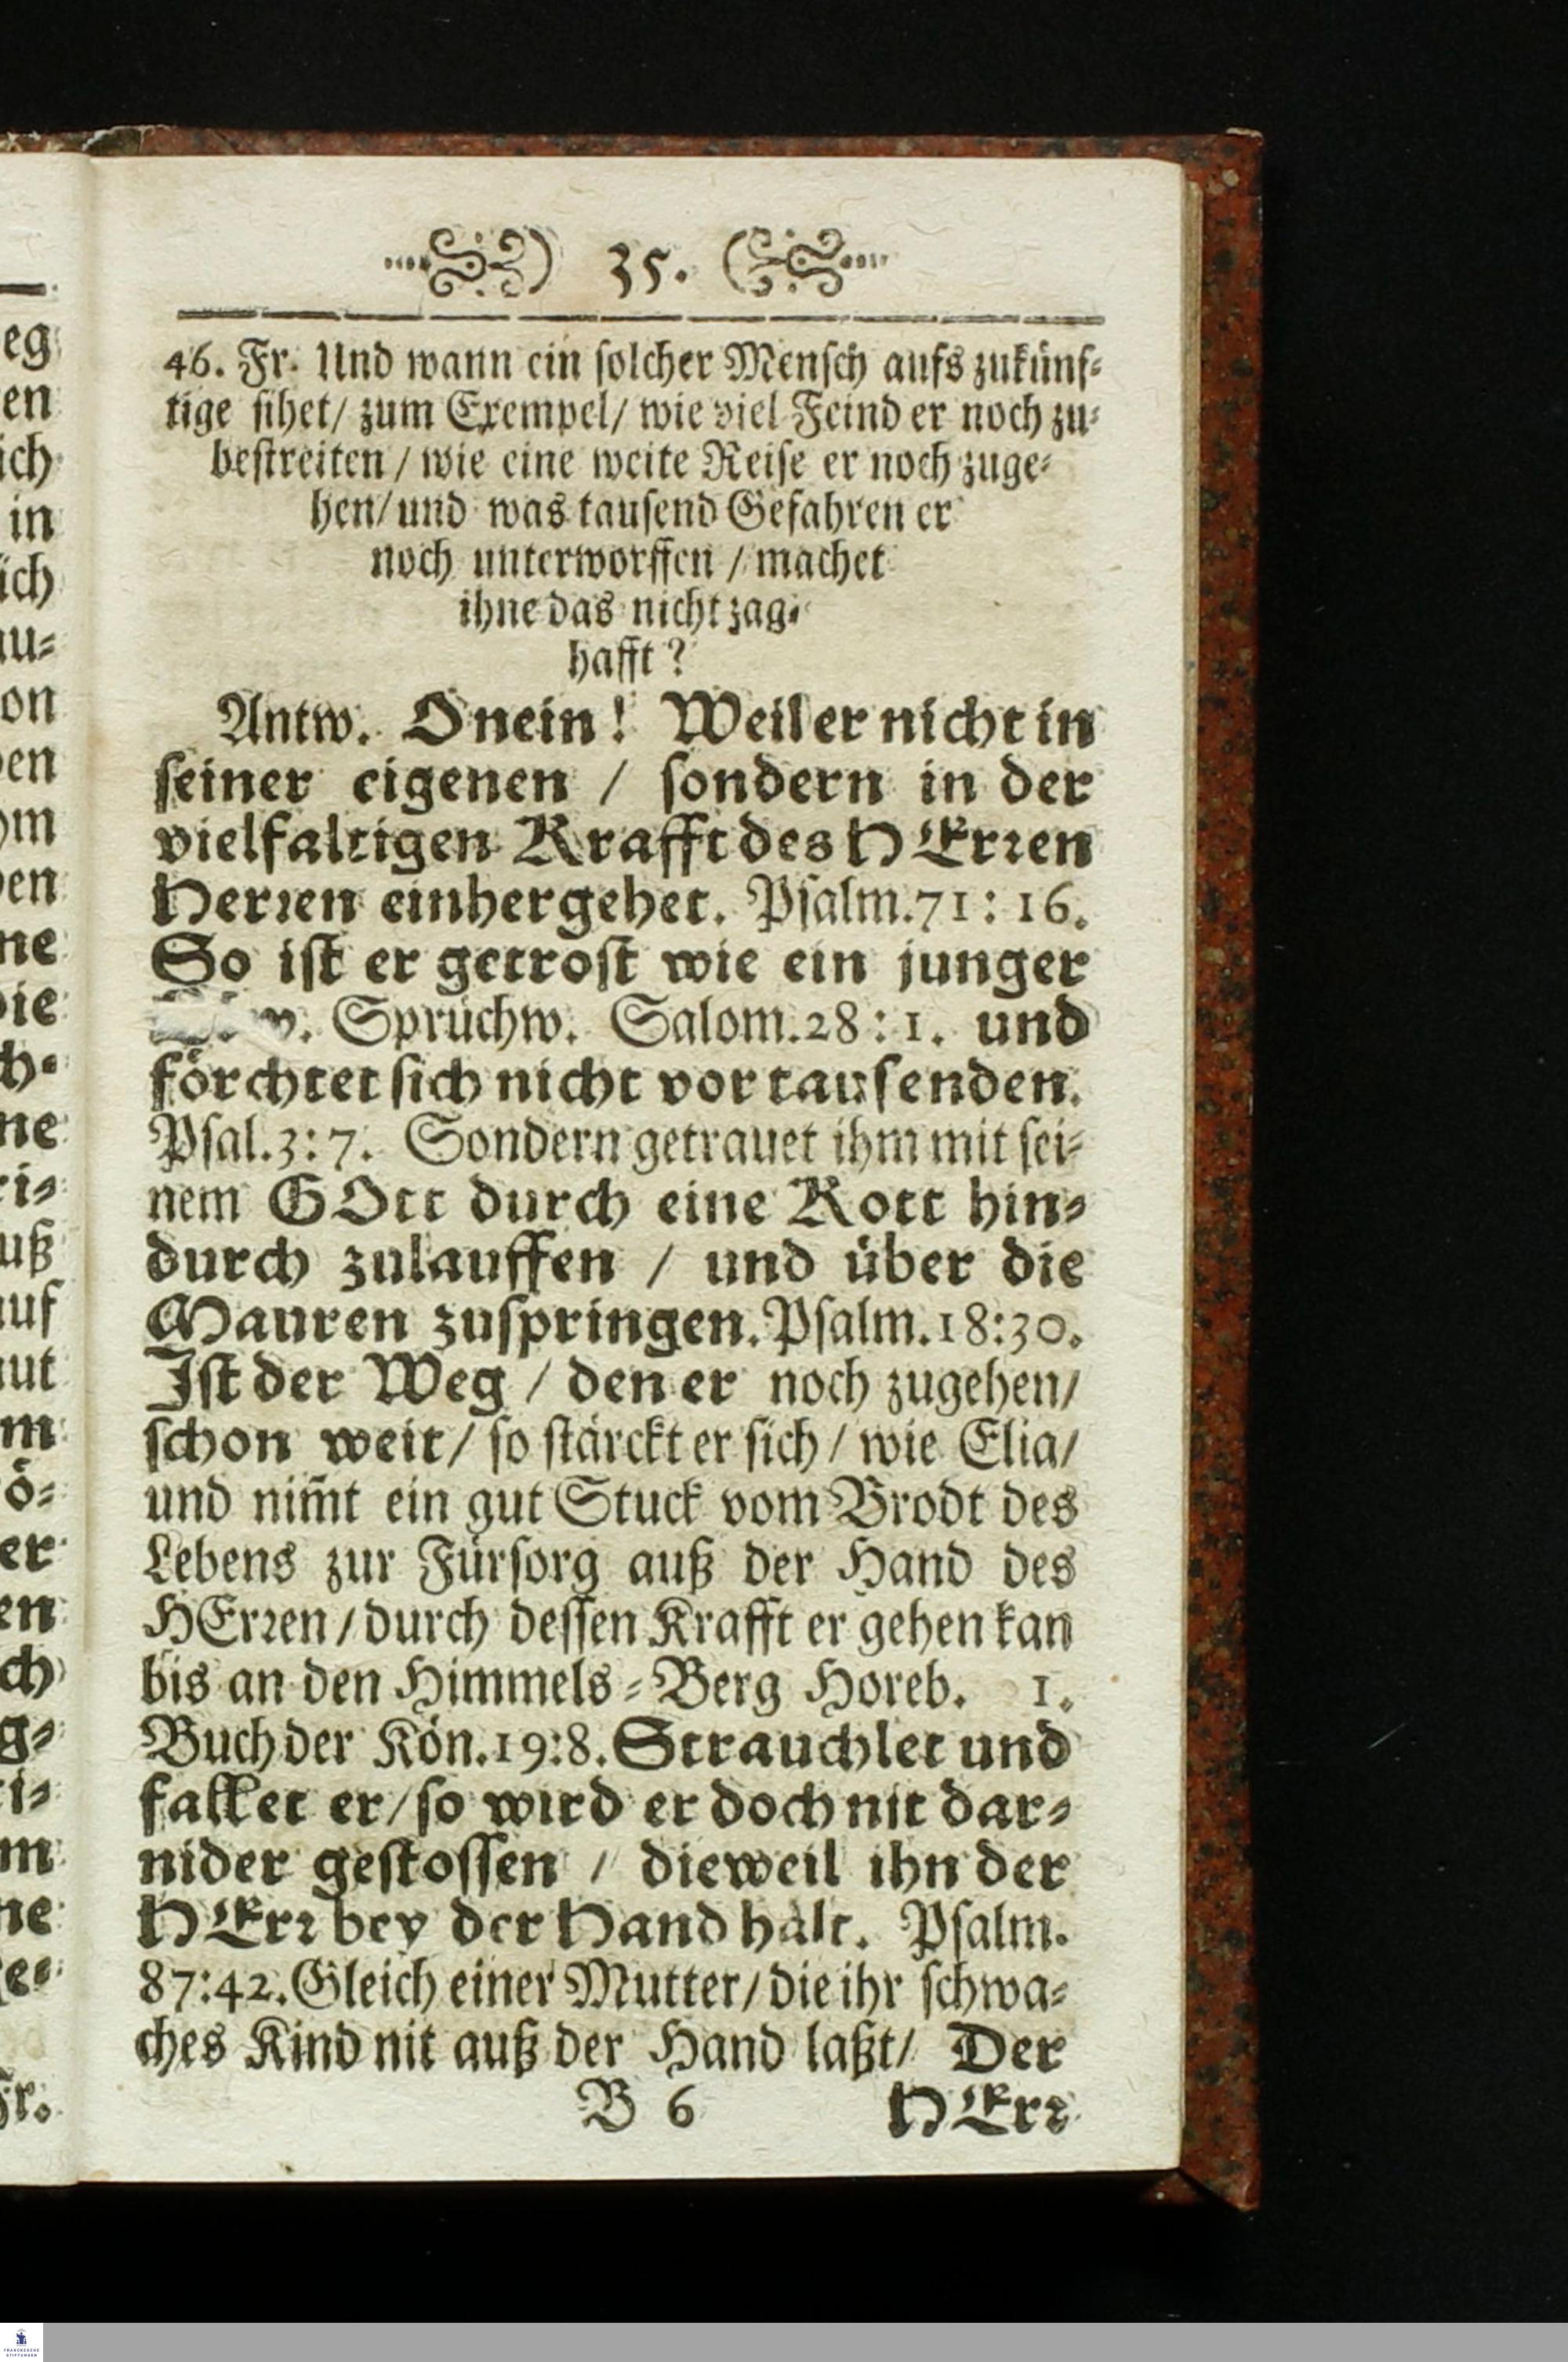 35.
46. Fr. Und wann ein ſolcher Menſch aufs zukünf⸗
tige ſihet/ zum Exempel/ wie viel Feind er noch zu⸗
beſtreiten / wie eine weite Reiſe er noch zuge⸗
hen/ und was tauſend Gefahren er
noch unterworffen / machet
ihne das nicht zag⸗
hafft?
Antw. O nein! Weil er nicht in
ſeiner eigenen / ſondern in der
vielfaltigen Krafft des HErꝛen
Herꝛen einhergehet. Pſalm. 71: 16.
So iſt er getroſt wie ein junger
Spruchw. Salom. 28: 1. und
förchtet ſich nicht vor tauſenden.
Pſal. 3: 7. Sondern getrauet ihm mit ſei⸗
nem GOtt durch eine Rott hin⸗
durch zulauffen / und über die
Mauren zuſpringen. Pſalm. 18:30.
Iſt der Weg / den er noch zugehen/
ſchon weit/ ſo ſtärckt er ſich / wie Elia/
und nim̃t ein gut Stuck vom Brodt des
Lebens zur Fürſorg auß der Hand des
HErꝛen / durch deſſen Krafft er gehen kan
bis an den Himmels⸗Berg Horeb. 1.
Buch der Kön. 19:8. Strauchlet und
fallet er/ ſo wird er doch nit dar⸗
nider geſtoſſen / dieweil ihn der
HErꝛ bey der Hand hält. Pſalm.
87:42. Gleich einer Mutter/ die ihr ſchwa⸗
ches Kind nit auß der Hand laßt/ Der
B 6 HErꝛ
eg
en
ich
in
ich
au⸗
on
en
hm
en
ne
die
h⸗
ne
ri⸗
uß
auf
aut
m
ö⸗
er
en
ch
g⸗
i⸗
m
ne
e⸗
Fr.
FRANCKESCHE
STIFTUNGEN